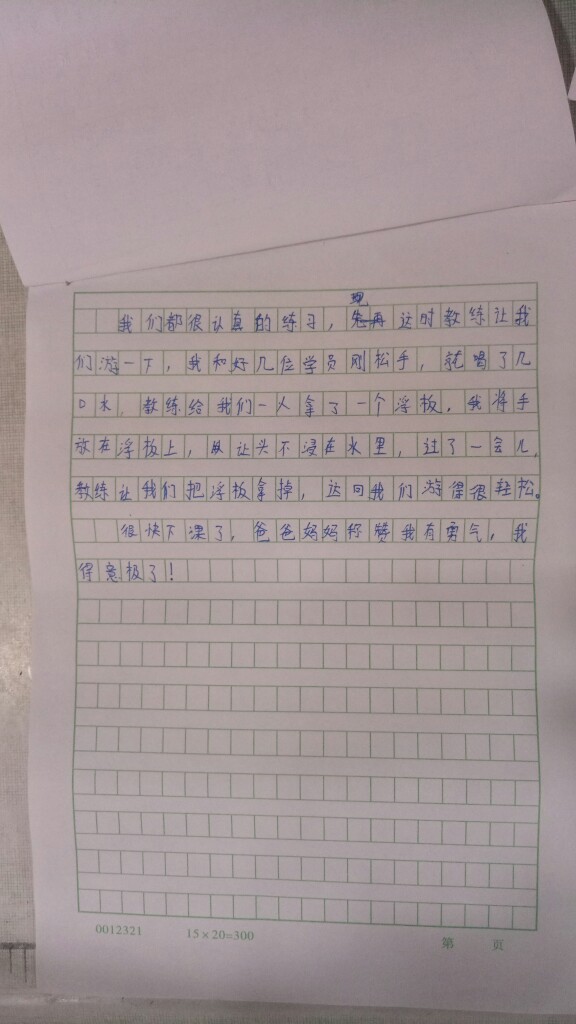 我们都很认真的练习，现这时教练让我
们游一下，我和好几位学员刚松手，就喝了几
口水，教练给我们一人拿了一个浮板，我将手
放在浮板上，以让头不浸在水里，过了一会儿，
教练让我们把浮板拿掉，这回我们游得很轻松。
很快下课了，爸爸妈妈称赞我有勇气，我
得意极了！
0012321 15×20=300 第 页